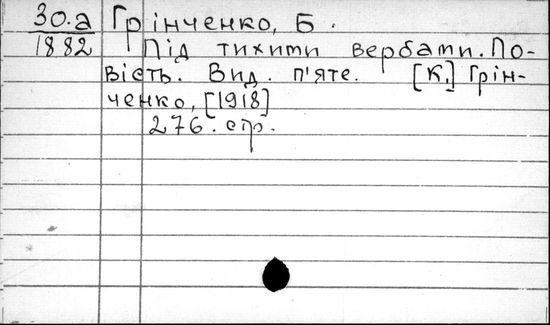 30.а Грінченко, Б.
1882 Під тихими вербами. По-
вість. Вид. п'яте. [К.] Грін-
ченко, [1918]
276. стр.